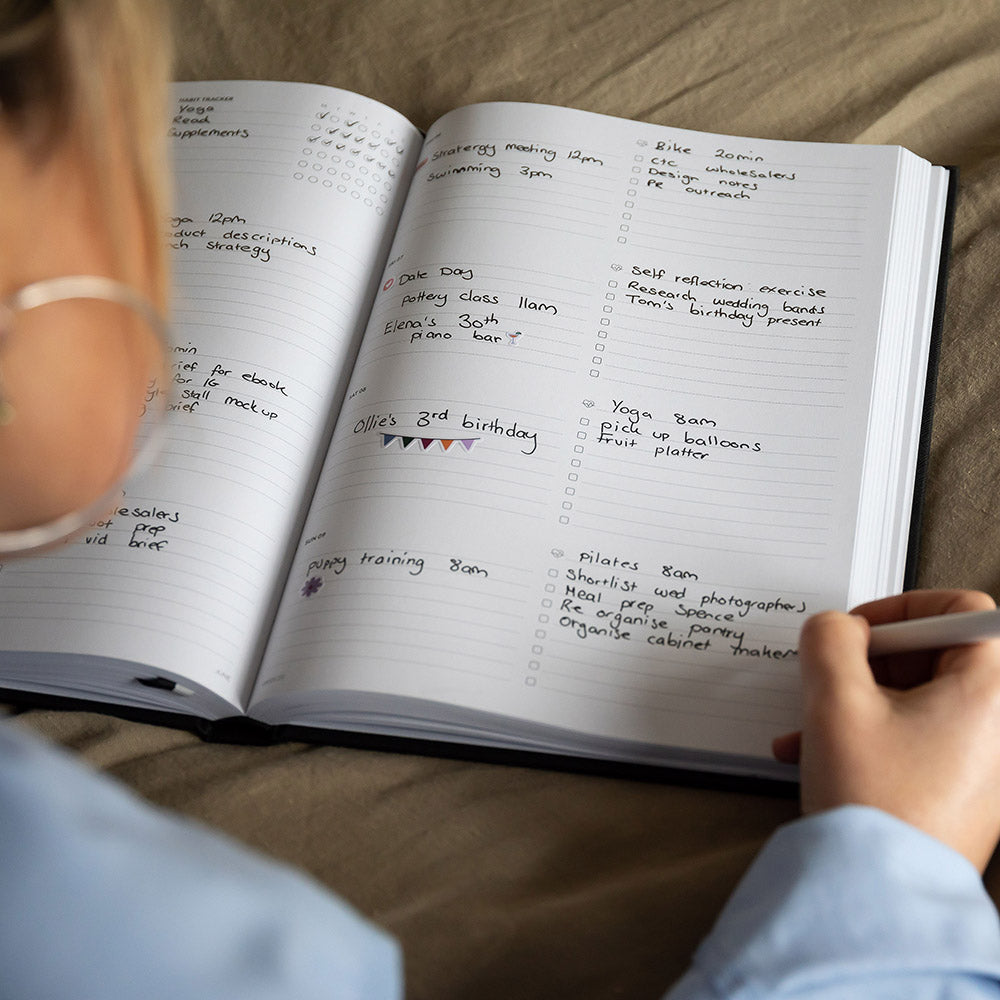 HABIT TRACKER
Yoga
Read
Supplements
12pm
descriptions
strategy
for ebook
for IG
stall mock up
brief
prep
vid brief
JUNE
Stratergy meeting 12pm
Swimming 3pm
Bike 20min
ctc wholesalers
Design notes
PR outreach
Date Day
pottery class 11am
Elena's 30th
piano bar
Self reflection exercise
Research wedding bands
Tom's birthday present
SAT 08
Ollie's 3rd birthday
Yoga 8am
pick up balloons
Fruit platter
SUN 09
puppy training 8am
pilates 8am
Shortlist wed photographers
Meal prep Spence
Re organise pantry
Organise cabinet maker